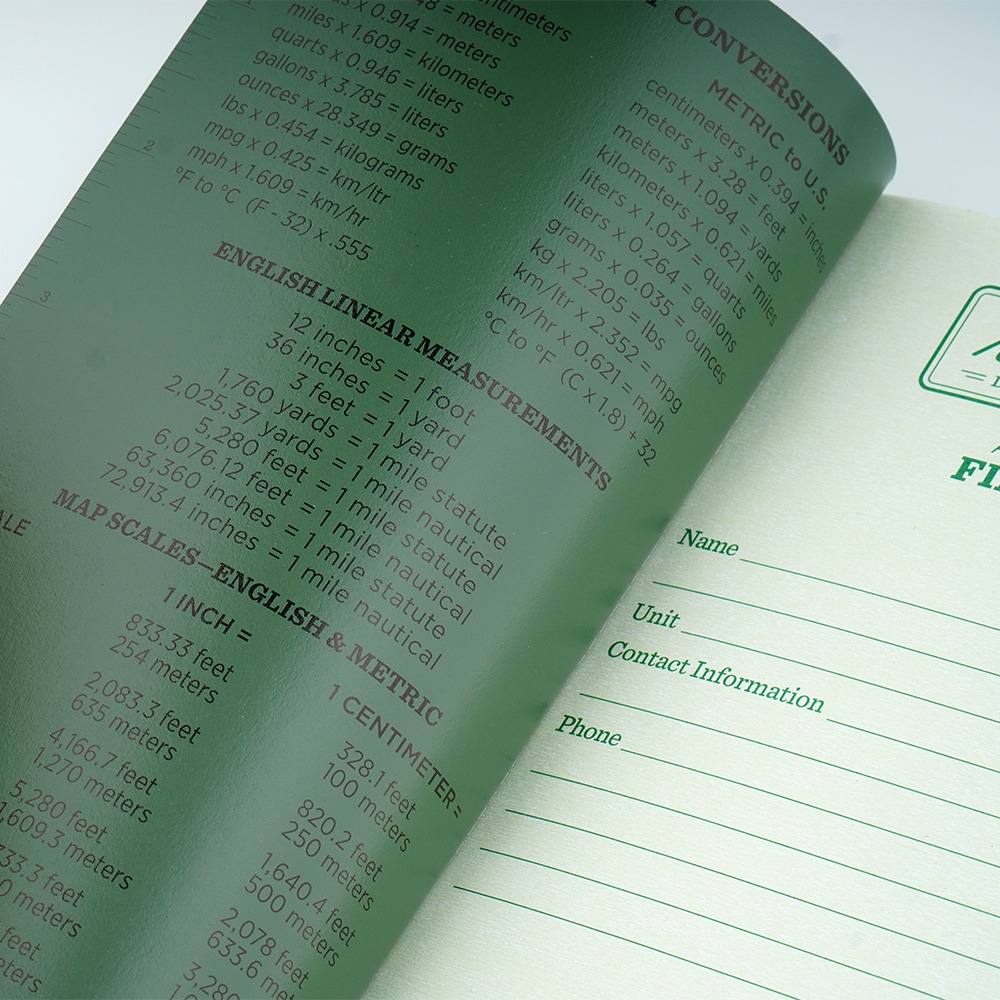 CONVERSIONS
= meters
x 0.914 = meters
miles x 1.609 = kilometers
quarts x 0.946 = liters
gallons x 3.785 = liters
ounces x 28.349 = grams
lbs x 0.454 = kilograms
mpg x 0.425 = km/ltr
mph x 1.609 = km/hr
°F to °C (F - 32) x .555
METRIC to U.S.
centimeters x 0.394 = inches
meters x 3.28 = feet
meters x 1.094 = yards
kilometers x 0.621 = miles
liters x 1.057 = quarts
liters x 0.264 = gallons
grams x 0.035 = ounces
kg x 2.205 = lbs
km/ltr x 2.352 = mpg
km/hr x 0.621 = mph
°C to °F (C x 1.8) + 32
2
3
ENGLISH LINEAR MEASUREMENTS
12 inches = 1 foot
36 inches = 1 yard
3 feet = 1 yard
1,760 yards = 1 mile statute
2,025.37 yards = 1 mile nautical
5,280 feet = 1 mile statute
6,076.12 feet = 1 mile nautical
63,360 inches = 1 mile statute
72,913.4 inches = 1 mile nautical
MAP SCALES—ENGLISH & METRIC
1 INCH =
833.33 feet
254 meters
2,083.3 feet
635 meters
4,166.7 feet
1,270 meters
5,280 feet
1,609.3 meters
meters
feet
1 CENTIMETER =
328.1 feet
100 meters
820.2 feet
250 meters
1,640.4 feet
500 meters
2,078 feet
633.6 meters
Name
Unit
Contact Information
Phone